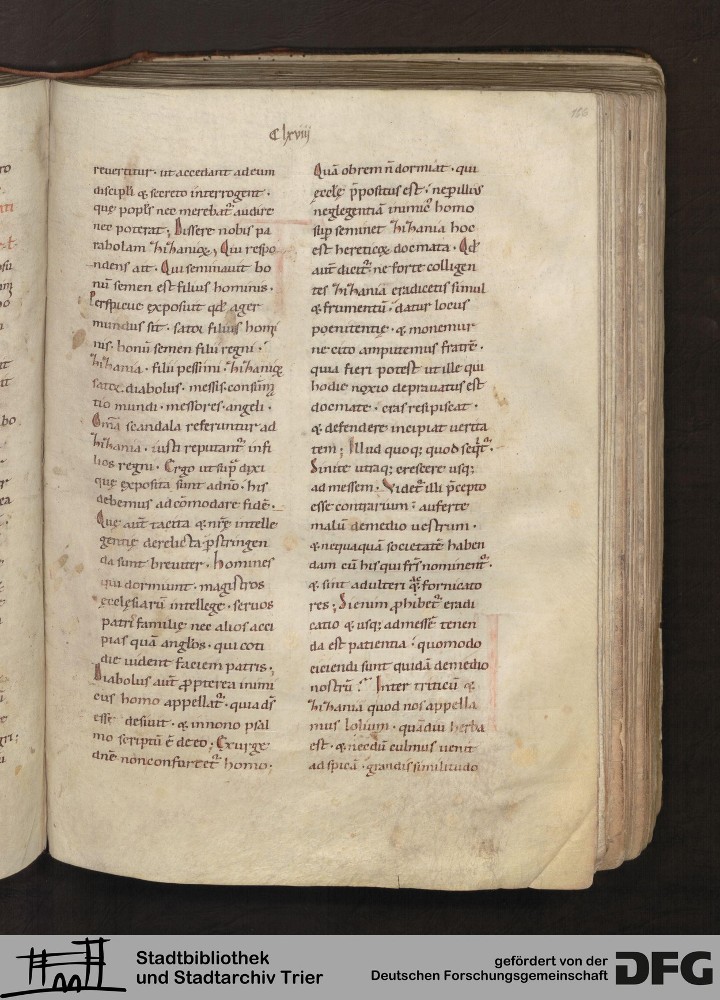 Clxviii
186
reuertitur · ut accedant ad eum
discipłi & secreto interrogent ·
quę popłs nec merebat᷑ audire
nec poterat ; Dissere nobis pa
rabolam zizanioꝝ ; Qui respo
ndens ait · Qui seminauit bo
nū semen est filius hominis ·
Perspicue exposuit qđ ager
mundus sit · sator filius homi
nis · bonū semen filii regni ·
zizania · filii pessimi · zizanioꝝ
sator diabolus · messis · consūm̄
tio mundi · messores · angeli ·
Om̄a scandala referuntur ad
zizania · iusti reputant᷑ int̄ fi
lios regni · Ergo ut sup̄ dixi
quę exposita sunt a dn̄o · his
debemus adcōmodare fidē ·
Quę aut̄ tacita & nr̄ę intelle
gentię derelicta p̄stringen
da sunt breuiter · Homines
qui dormiunt · magistros
ęcclesiarū intellege · seruos
patris familię nec alios acci
pias quā angłos · qui coti
die uident faciem patris ·
Diabolus aut̄ ꝓpterea inimi
cus homo appellat᷑ · quia ds̄
esse desiuit · & in nono psal
mo scriptū ē de eo ; Exurge
dn̄e non confortet᷑ homo ·
Quā obrem n̄ dormiat · qui
ęcclę p̄positus est · ne p illius
neglegentiā inimic᷒ homo
sup̄ seminet zizania hoc
est hereticoꝝ docmata · Qđ
aut̄ dicit᷑ · ne forte colligen
tes zizania eradicetis simul
& frumentū · datur locus
poenitentię · & monemur
ne cito amputemus fratrē ·
quia fieri potest ut ille qui
hodie noxio deprauatus est
docmate · cras resipiscat ·
& defendere incipiat uerita
tem ; Illud quoq; quod seq̄t᷑ ·
Sinite utraq; crescere usq;
ad messem · Videt᷑ illi p̄cepto
esse contrarium · auferte
malū de medio uestrum ·
& nequaquā societatē haben
dam cū his qui fr̄s nominent᷑ ·
& sint adulteri & fornicato
res ; Si enim ꝓhibet᷑ eradi
catio & usq; ad messē tenen
da est patientia · quomodo
eiciendi sunt quidā de medio
nostrū · Inter triticū &
zizania quod nos appella
mus lolium · quādiu herba
est · & necdū culmus uenit
ad spicā · grandis similitudo
Stadtbibliothek
und Stadtarchiv Trier
gefördert von der
Deutschen Forschungsgemeinschaft
DFG